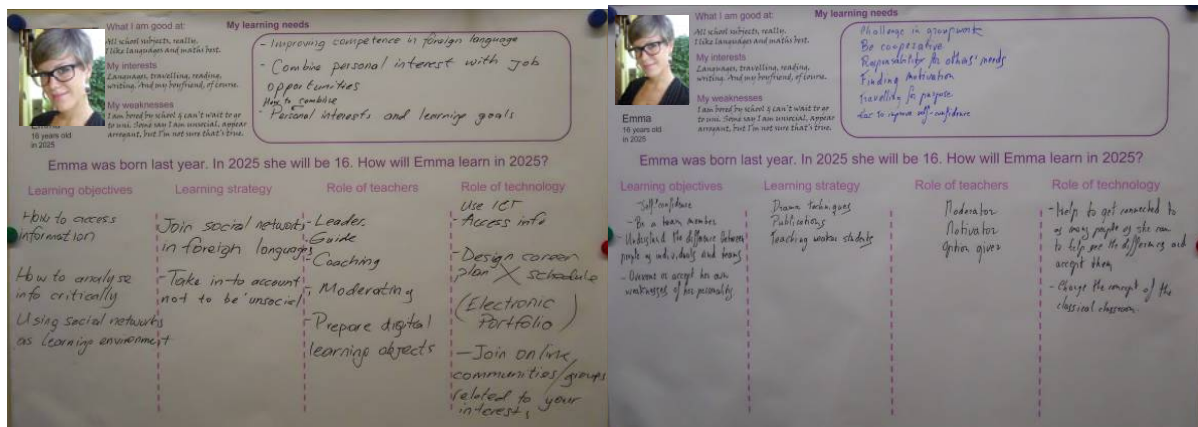 What I am good at:
All school subjects, really.
I like languages and maths best.
My interests
Languages, travelling, reading,
writing. And my boyfriend, of course.
My weaknesses
I am bored by school & can't wait to go
to uni. Some say I am unsocial, appear
arrogant, but I'm not sure that's true.
Emma
16 years old
in 2025
My learning needs
- Improving competence in foreign language
- Combine personal interest with job
opportunities
How to combine
- Personal interests and learning goals
Emma was born last year. In 2025 she will be 16. How will Emma learn in 2025?
Learning objectives
How to access
information
How to analyse
info critically
Using social networks
as learning environment
Learning strategy
Join social networks
in foreign languages
- Take in to account
not to be 'unsocial'
Role of teachers
- Leader
- Guide
- Coaching
- Moderating
- Prepare digital
learning objects
Role of technology
Use ICT
- Access info
- Design career
plan X schedule
(Electronic
Portfolio)
- Join online
communities/groups
related to your
interests
What I am good at:
All school subjects, really.
I like languages and maths best.
My interests
Languages, travelling, reading,
writing. And my boyfriend, of course.
My weaknesses
I am bored by school & can't wait to go
to uni. Some say I am unsocial, appear
arrogant, but I'm not sure that's true.
Emma
16 years old
in 2025
My learning needs
Challenge in groupwork
Be cooperative
Responsibility for others' needs
Finding motivation
Travelling for purpose
to improve self-confidence
Emma was born last year. In 2025 she will be 16. How will Emma learn in 2025?
Learning objectives
- Self-confidence
- Be a team member
- Understand the difference between
people of individuals and teams
- Overcome or accept her own
weaknesses of her personality
Learning strategy
Drama techniques
Publications
Teaching weaker students
Role of teachers
Moderator
Motivator
Option giver
Role of technology
- Help to get connected to
as many people as she can
to help see the differences and
accept them
- Change the concept of the
classical classroom.